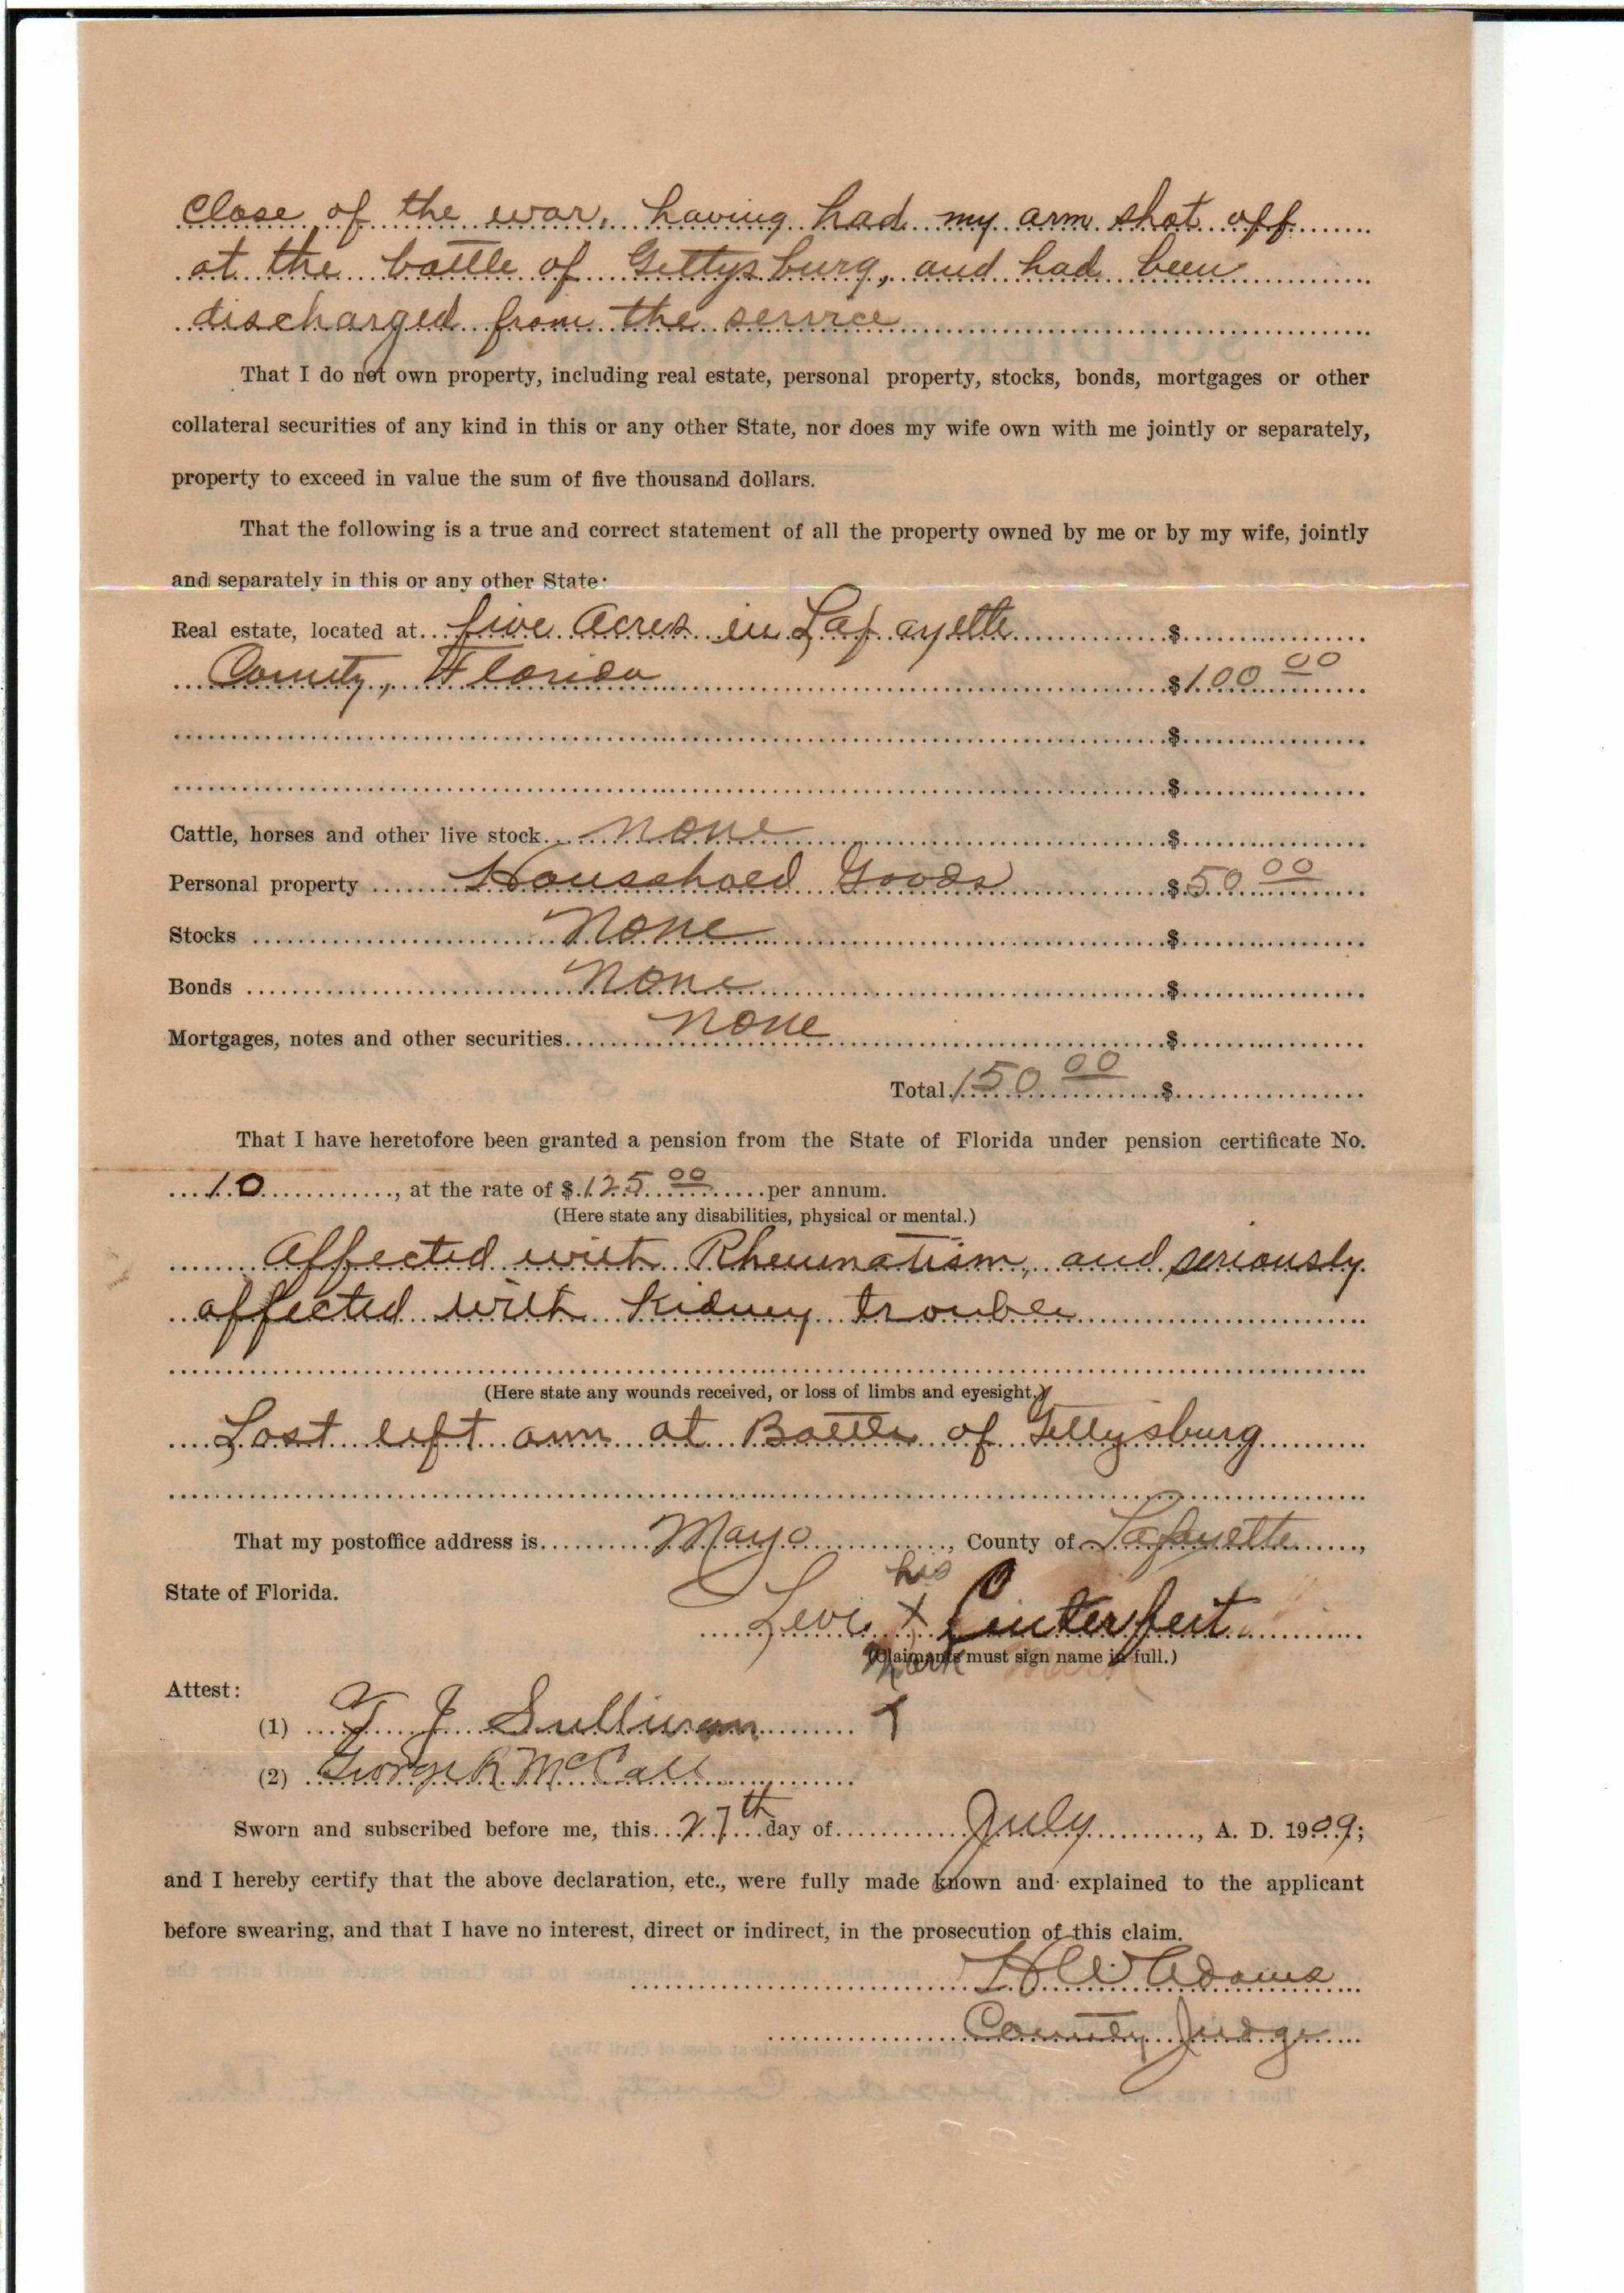 close of the war, having had my arm shot off
at the battle of Gettysburg, and had been
discharged from the service
That I do not own property, including real estate, personal property, stocks, bonds, mortgages or other
collateral securities of any kind in this or any other State, nor does my wife own with me jointly or separately,
property to exceed in value the sum of five thousand dollars.
That the following is a true and correct statement of all the property owned by me or by my wife, jointly
and separately in this or any other State:
Real estate, located at five Acres in Lafayette $
County, Florida $100 00
$
$
Cattle, horses and other live stock none $
Personal property Household Goods $50 00
Stocks None $
Bonds None $
Mortgages, notes and other securities none $
Total 150 00 $
That I have heretofore been granted a pension from the State of Florida under pension certificate No.
10, at the rate of $125 00 per annum.
(Here state any disabilities, physical or mental.)
Affected with Rheumatism, and seriously
affected with Kidney trouble
(Here state any wounds received, or loss of limbs and eyesight.)
Lost left arm at Battle of Gettysburg
That my postoffice address is Mayo, County of Lafayette,
his
State of Florida.
Levi X Cinterfeit
mark
(Claimants must sign name in full.)
Attest:
(1) T J Sullivan
(2) George R McCall
Sworn and subscribed before me, this 27th day of July, A. D. 1909;
and I hereby certify that the above declaration, etc., were fully made known and explained to the applicant
before swearing, and that I have no interest, direct or indirect, in the prosecution of this claim.
Adams
County Judge